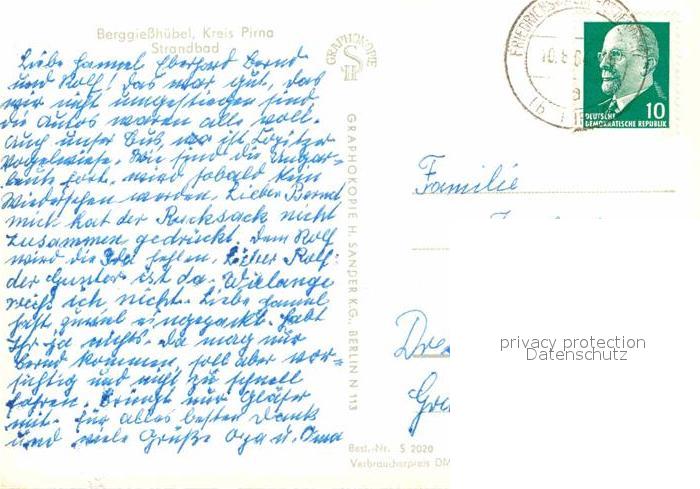 Berggießhübel, Kreis Pirna
Strandbad
Liebe Eberhard Bernd
und Rolf! Das war gut, das
wir nicht umgestiegen sind
die Autos waren alle voll.
Auch unser Bus, wo ist
Vogelwiese. Wie sind die
fort. wird sobald kein
Wiedersehen werden. Lieber Bernd
mich hat der Rucksack nicht
zusammen gedrückt. Dem Rolf
wird die fehlen. Lieber Rolf:
der Gunter ist da. Wielange
weiß ich nicht. Liebe
hast zuviel eingepackt. Habt
Ihr ja nichts. Da mag nur
Bernd kommen, soll aber vor-
sichtig und nicht zu schnell
fahren. Bringt nur Gläser
mit. Für alles besten Dank
und viele Grüße Opa u. Oma
GRAPHOKOPIE
GRAPHOKOPIE H. SANDER KG., BERLIN N 113
Best.-Nr. S 2020
Verbraucherpreis DM
10.8.6
10
DEUTSCHE
DEMOKRATISCHE REPUBLIK
Familie
privacy protection
Datenschutz